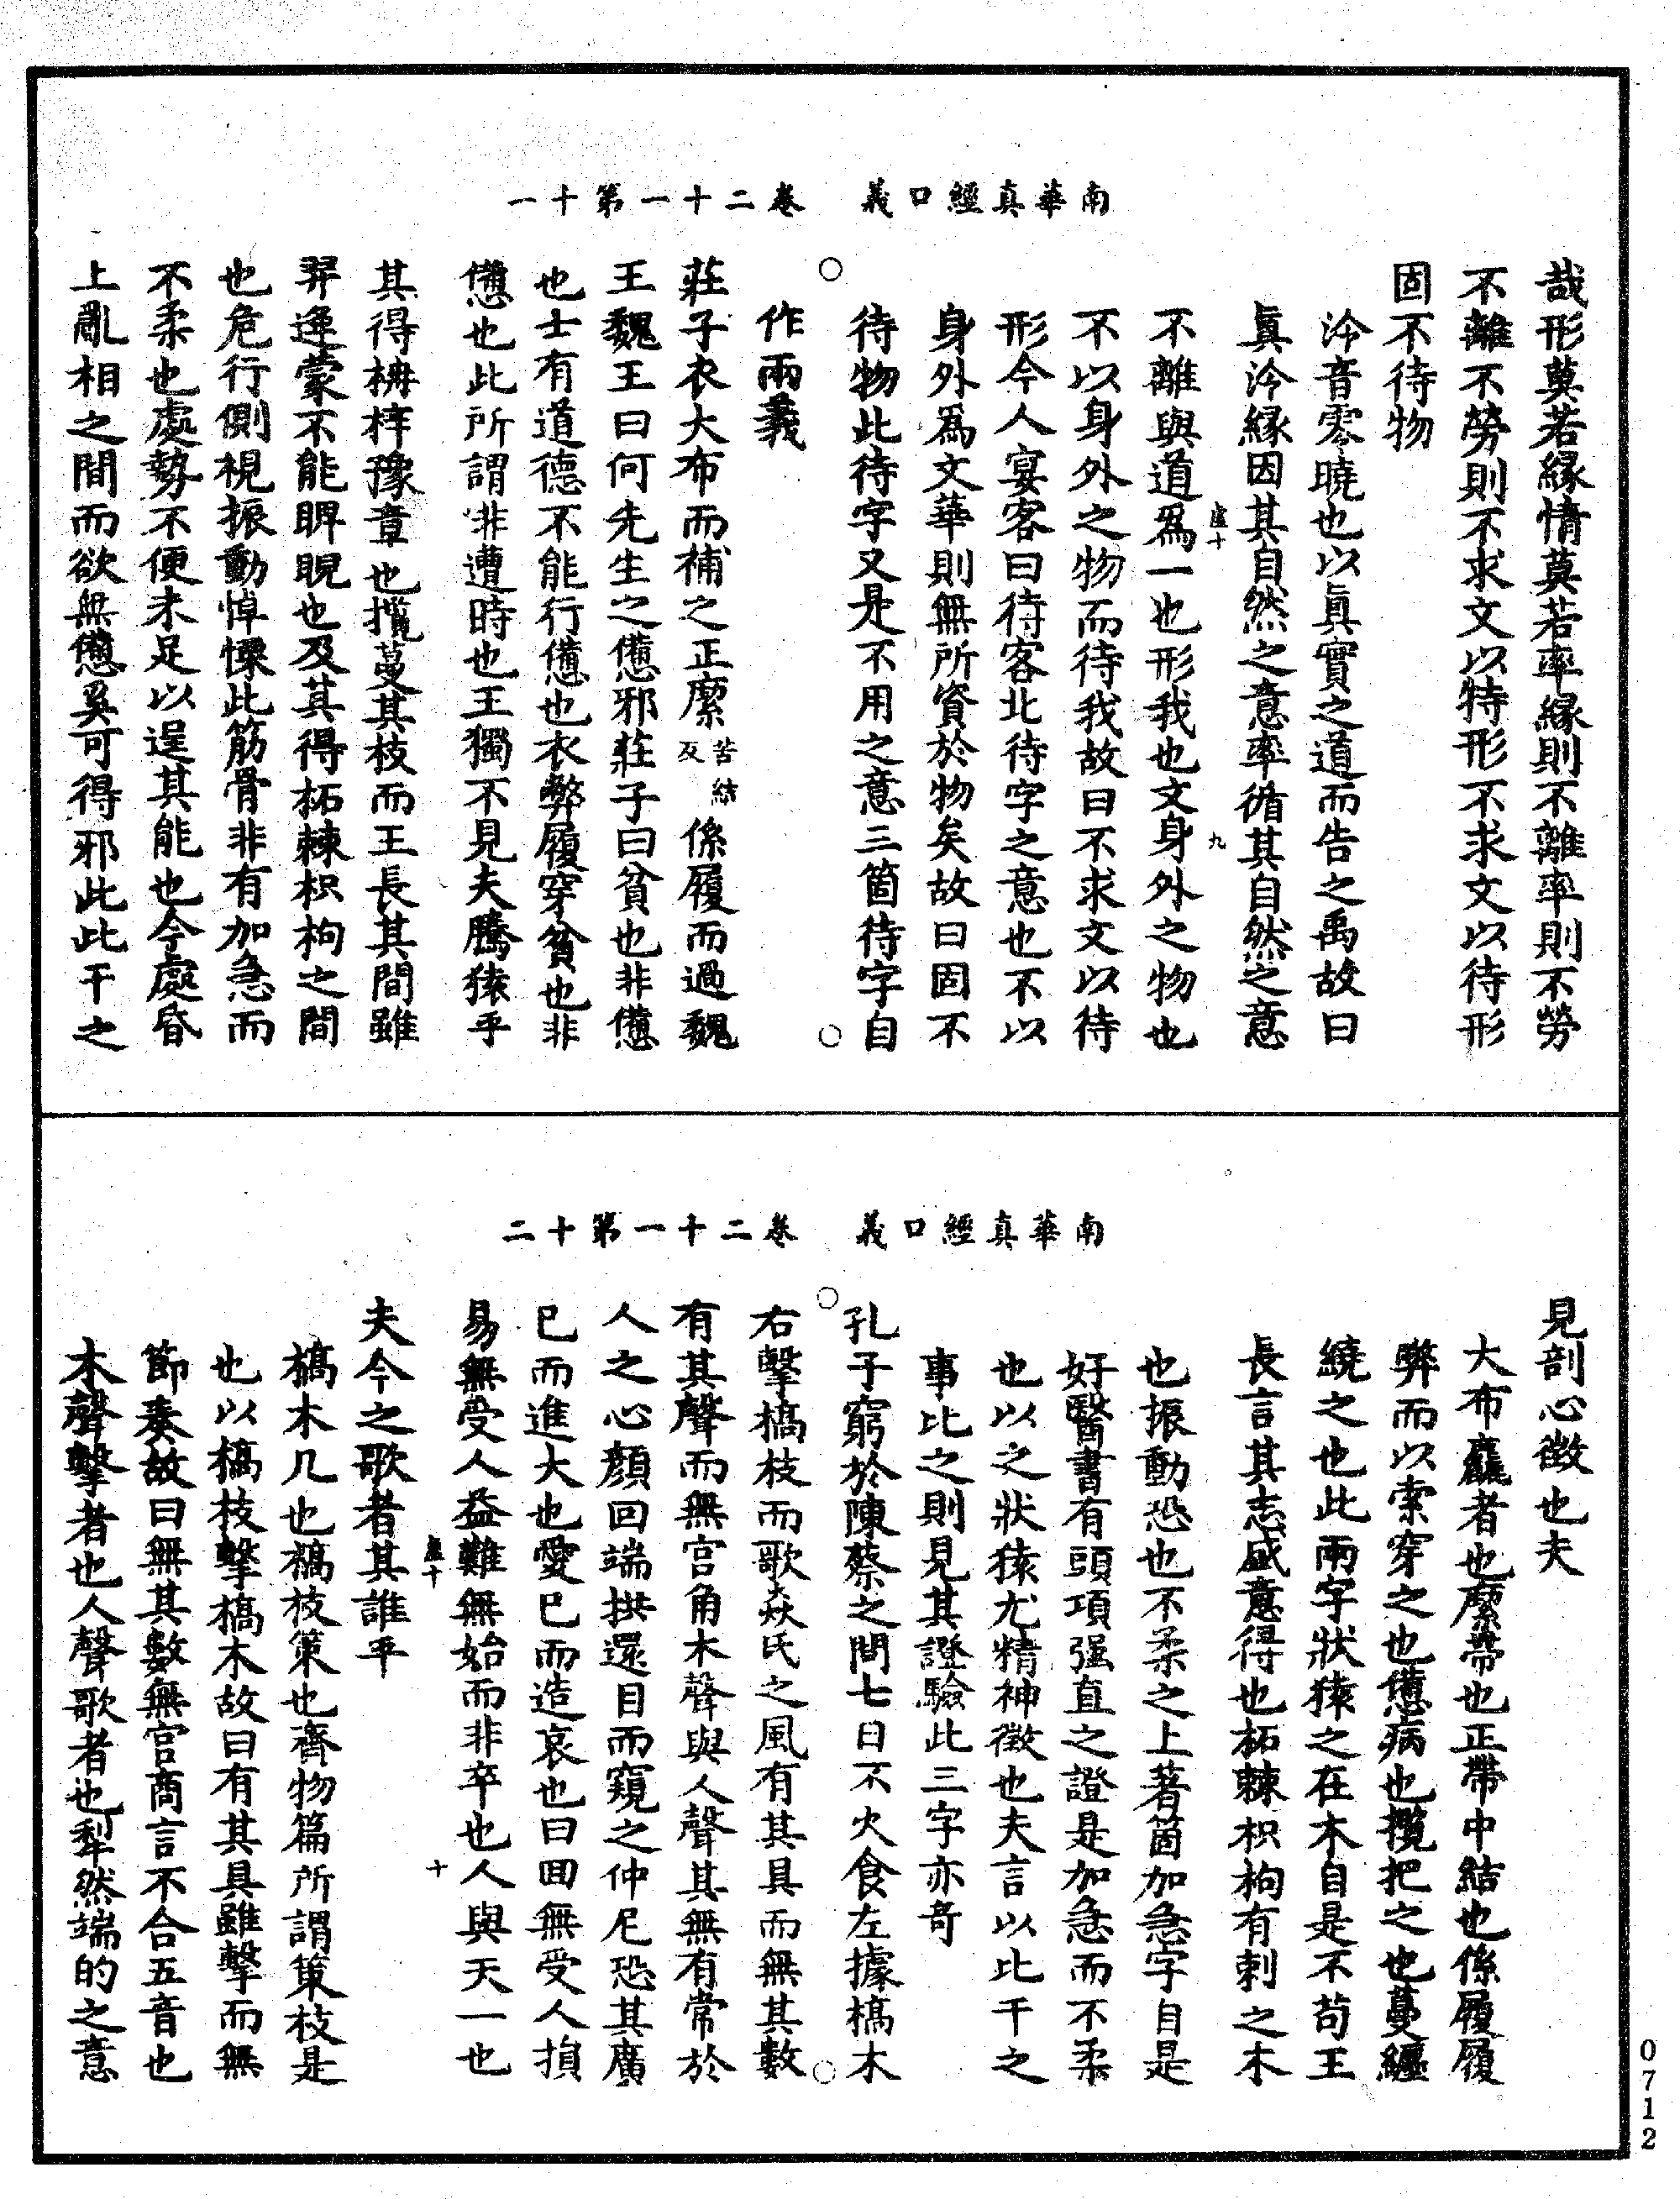 南華真經口義　卷二十一第十一
哉形莫若緣情莫若率緣則不離率則不勞
不離不勞則不求文以待形不求文以待形
固不待物
泠音零曉也以真實之道而告之禹故曰
真泠緣因其自然之意率循其自然之意
虛十　九
不離與道爲一也形我也文身外之物也
不以身外之物而待我故曰不求文以待
形今人宴客曰待客北待字之意也不以
身外爲文華則無所資於物矣故曰固不
待物此待字又是不用之意三箇待字自
作兩義
莊子衣大布而補之正緳苦結反係履而過魏
王魏王曰何先生之憊邪莊子曰貧也非憊
也士有道德不能行憊也衣弊履穿貧也非
憊也此所謂非遭時也王獨不見夫騰猿乎
其得枏梓豫章也攬蔓其枝而王長其間雖
羿逄蒙不能眄睨也及其得柘棘枳枸之間
也危行側視振動悼慄此筋骨非有加急而
不柔也處勢不便未足以逞其能也今處昏
上亂相之間而欲無憊奚可得邪此比干之
南華真經口義　卷二十一第十二
見剖心徵也夫
大布麤者也緳帶也正帶中結也係履履
弊而以索穿之也憊病也攬把之也蔓纏
繞之也此兩字狀猿之在木自是不苟王
長言其志盛意得也柘棘枳枸有刺之木
也振動恐也不柔之上著箇加急字自是
好醫書有頭項强直之證是加急而不柔
也以之狀猿尤精神徵也夫言以比干之
事比之則見其證驗此三字亦奇
孔子窮於陳蔡之間七日不火食左據槁木
右擊槁枝而歌焱氏之風有其具而無其數
有其聲而無宮角木聲與人聲其無有常於
人之心顏回端拱還目而窺之仲尼恐其廣
已而進大也愛已而造哀也曰回無受人損
易無受人益難無始而非卒也人與天一也
虛十　十
夫今之歌者其誰乎
槁木几也槁枝策也齊物篇所謂策枝是
也以槁枝擊槁木故曰有其具雖擊而無
節奏故曰無其數無宮商言不合五音也
木聲擊者也人聲歌者也犁然端的之意
0712